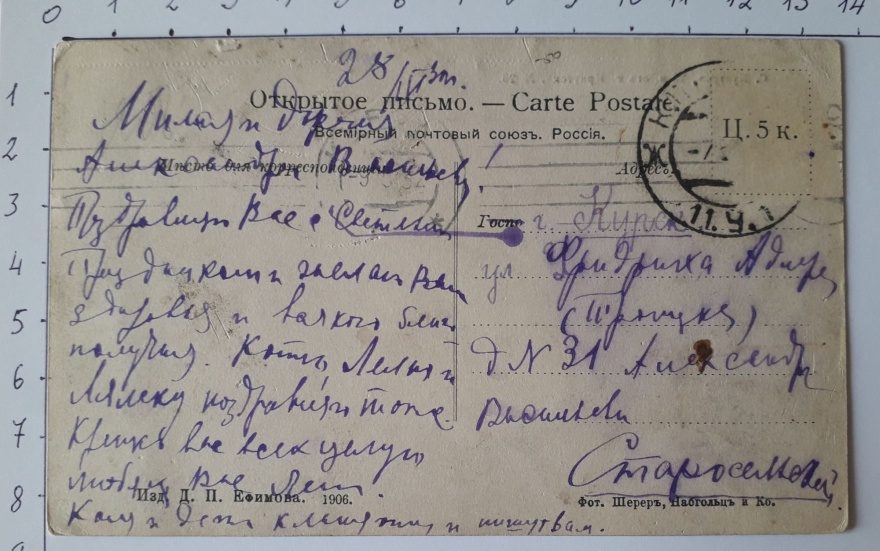 0 1 2 3 4 5 6 7 8 9 10 11 12 13 14
1
2
3
4
5
6
7
8
28/III
Открытое письмо. — Carte Postale.
Всемірный почтовый союзъ. Россія.
Мѣсто для корреспонденціи
Адресъ
Ц. 5 к.
Милая и дорогая
Александра Васильевна!
Поздравляю Вас с Светлым
Праздником и желаю Вам
здоровья и всякого блага
получия. Котю, Лелю и
Лялечку поздравляю тоже.
Крепко вас всех целую
любящ Вас
Коля и дети кланяются и пишут вам.
г. Курск
ул Фридриха Адлера
(Троицкая)
д N 31 Александре
Васильевне
Старосельской
Изд. Д. П. Ефимова. 1906.
Фот. Шереръ, Набгольцъ и Ко.